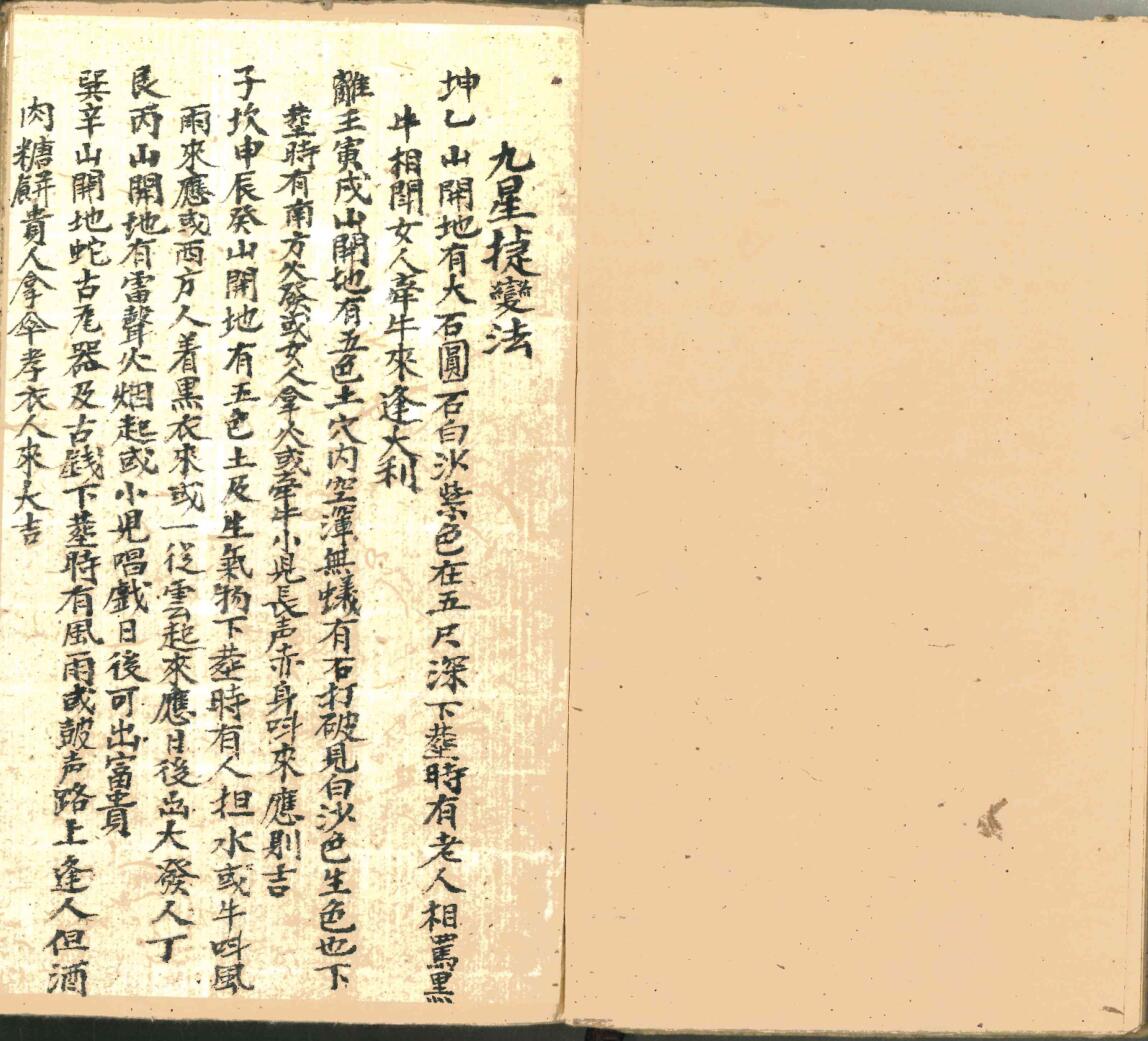 九星捷變法
坤乙山開地有大石圓石白沙紫色在五尺深下塟時有老人相罵黑
牛相鬪女人牽牛來逢大利
離壬寅戌山開地有五色土穴内空渾無蟻有石打破見白沙色生色也下
塟時有南方火發或女人拿火或牽牛小兒長声赤身呌來應則吉
子坎申辰癸山開地有五色土及生氣物下塟時有人担水或牛呌風
雨來應或西方人着黑衣來或一從雲起來應日後出大發人丁
艮丙山開地有雷聲火烟起或小兒唱戲日後可出富貴
巽辛山開地蛇古瓦器及古銭下塟時有風雨或皷声路上逢人但酒
肉糖餅貴人拿傘孝衣人來大吉